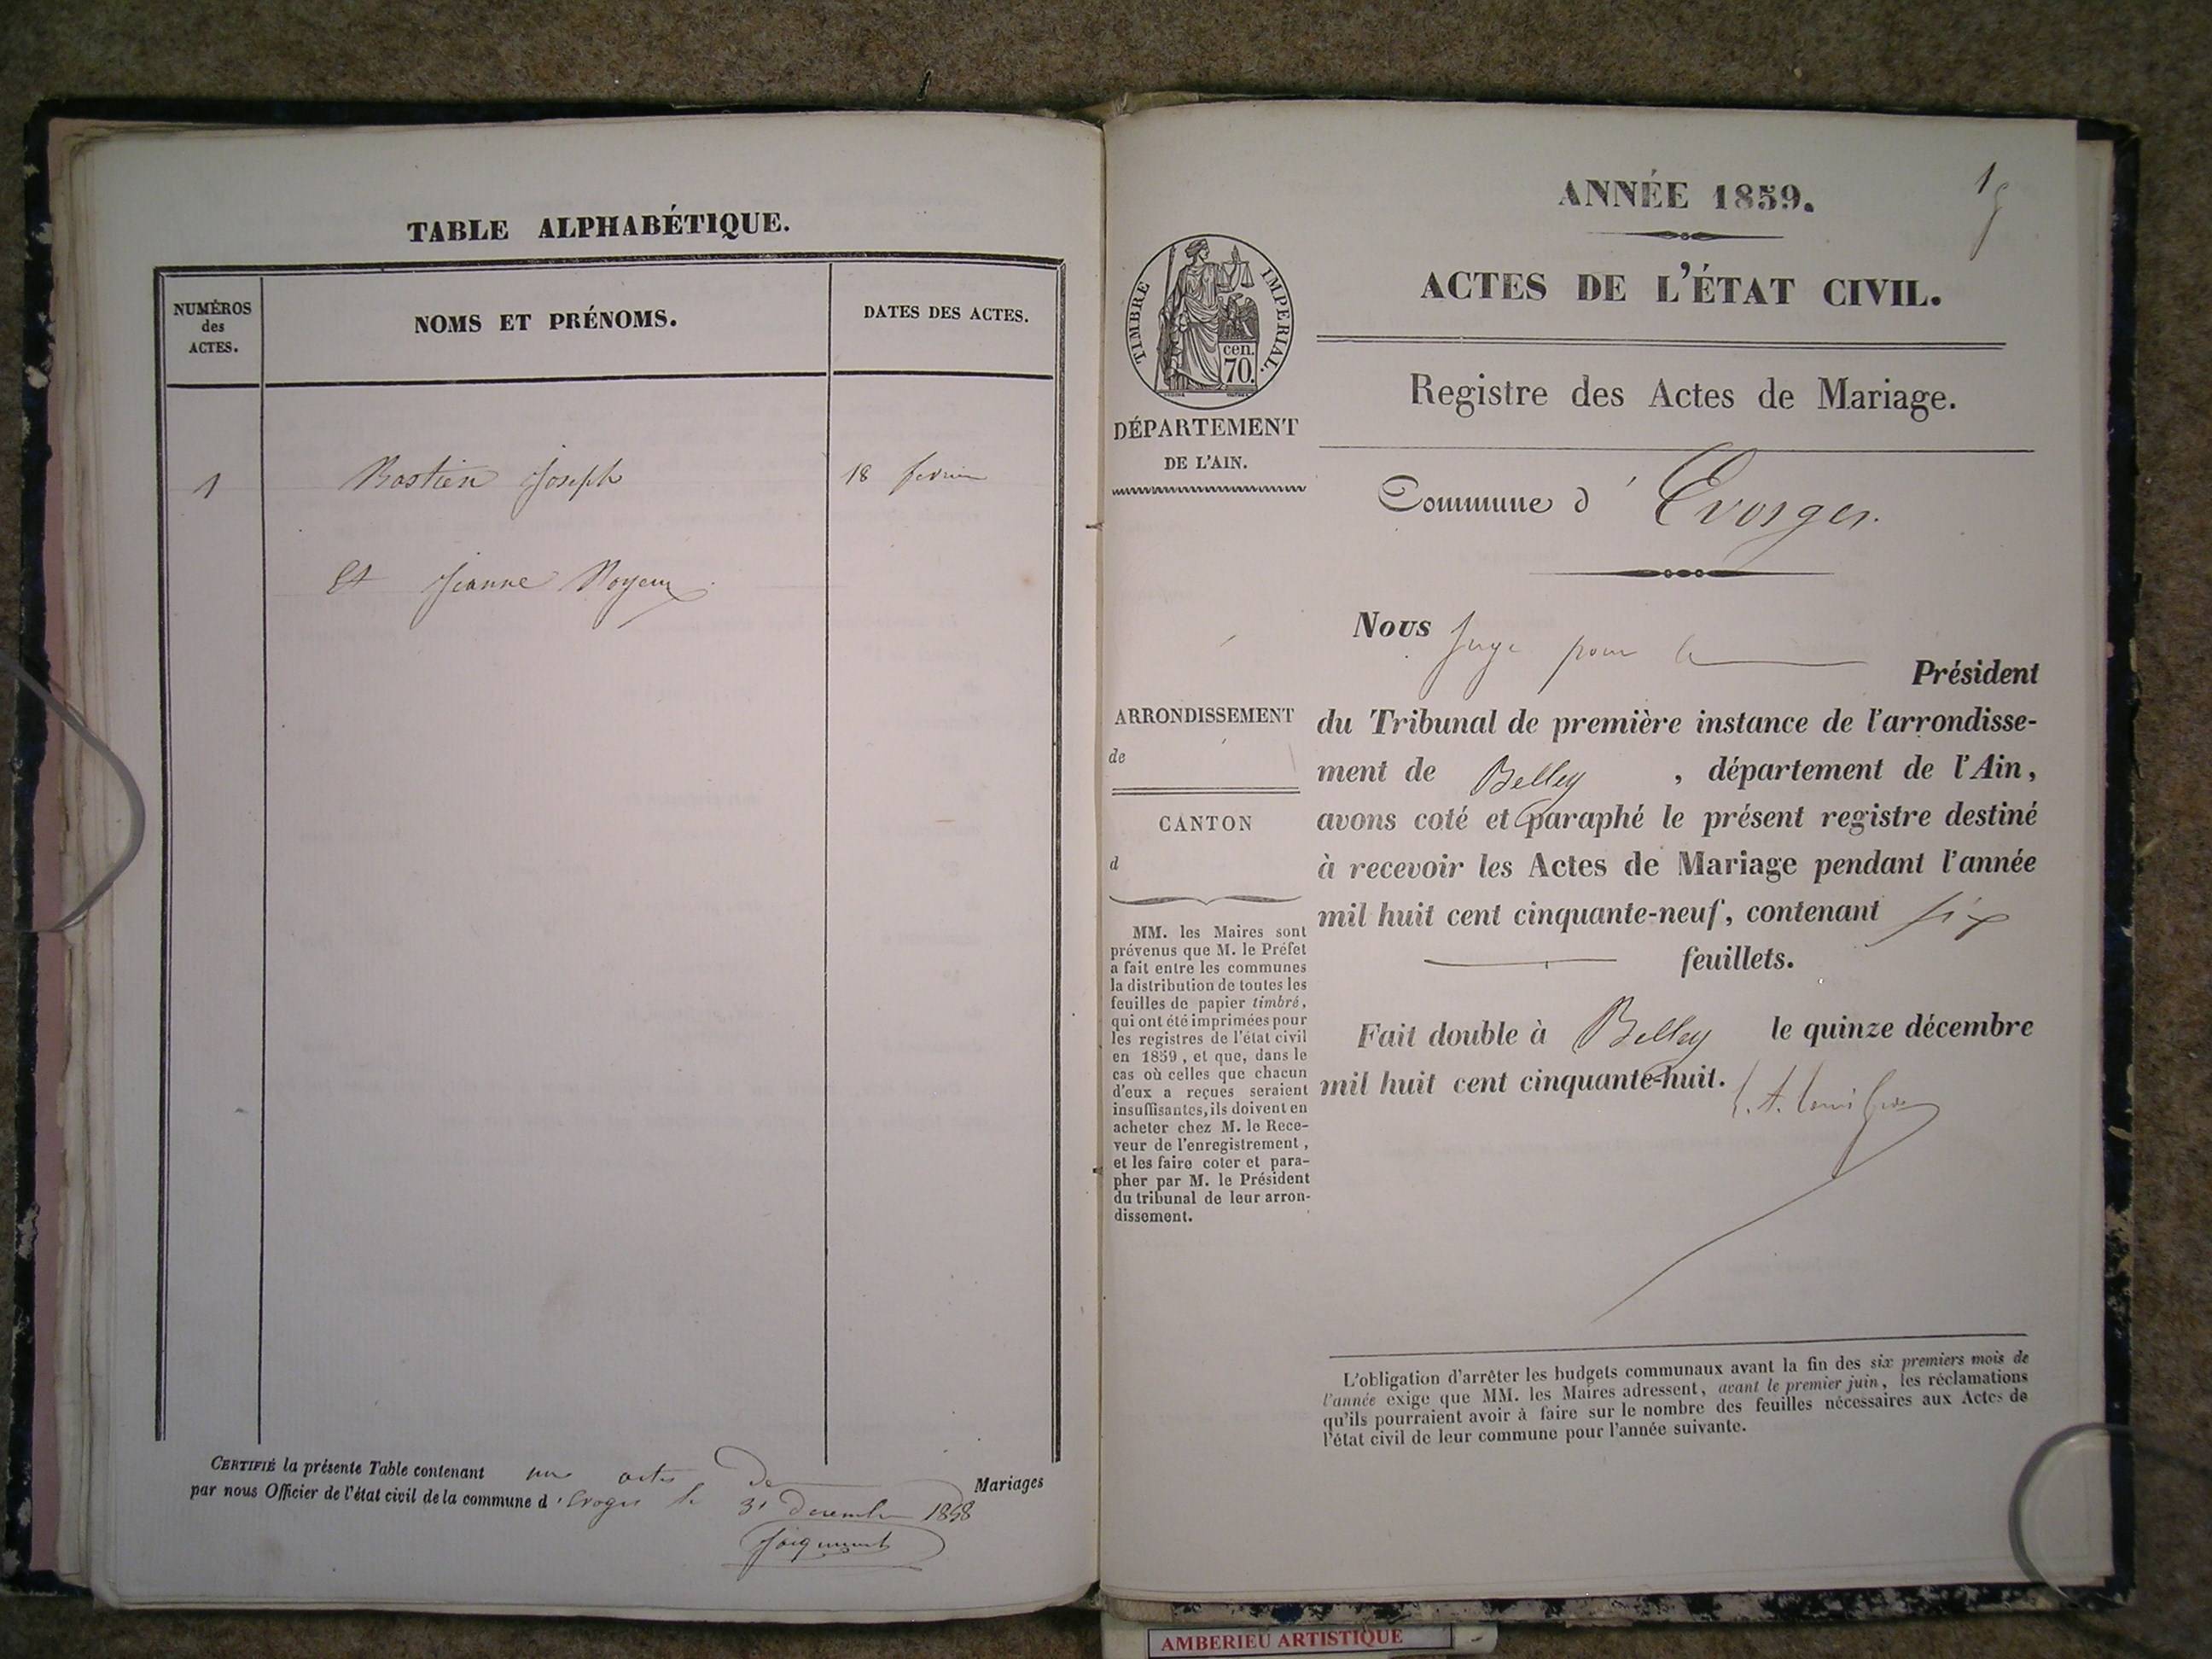 TABLE ALPHABÉTIQUE.
NUMÉROS
des
ACTES.
NOMS ET PRÉNOMS.
DATES DES ACTES.
1 Bastien Joseph 18 fevrier
Et Jeanne
CERTIFIÉ la présente Table contenant un acte De Mariages
par nous Officier de l'état civil de la commune d'Evoges le 31 decembre 1858
ANNÉE 1859.
ACTES DE L'ÉTAT CIVIL.
Registre des Actes de Mariage.
TIMBRE IMPERIAL.
cen.
70.
DÉPARTEMENT
DE L'AIN.
Commune d'Evosges.
Nous Juge pour le Président
du Tribunal de première instance de l'arrondisse-
ment de Belley, département de l'Ain,
avons coté et paraphé le présent registre destiné
à recevoir les Actes de Mariage pendant l'année
mil huit cent cinquante-neuf, contenant six
feuillets.
Fait double à Belley le quinze décembre
mil huit cent cinquante-huit.
ARRONDISSEMENT
de
CANTON
d
MM. les Maires sont
prévenus que M. le Préfet
a fait entre les communes
la distribution de toutes les
feuilles de papier timbré,
qui ont été imprimées pour
les registres de l'état civil
en 1859, et que, dans le
cas où celles que chacun
d'eux a reçues seraient
insuffisantes, ils doivent en
acheter chez M. le Rece-
veur de l'enregistrement,
et les faire coter et para-
pher par M. le Président
du tribunal de leur arron-
dissement.
L'obligation d'arrêter les budgets communaux avant la fin des six premiers mois de
l'année exige que MM. les Maires adressent, avant le premier juin, les réclamations
qu'ils pourraient avoir à faire sur le nombre des feuilles nécessaires aux Actes de
l'état civil de leur commune pour l'année suivante.
AMBERIEU ARTISTIQUE